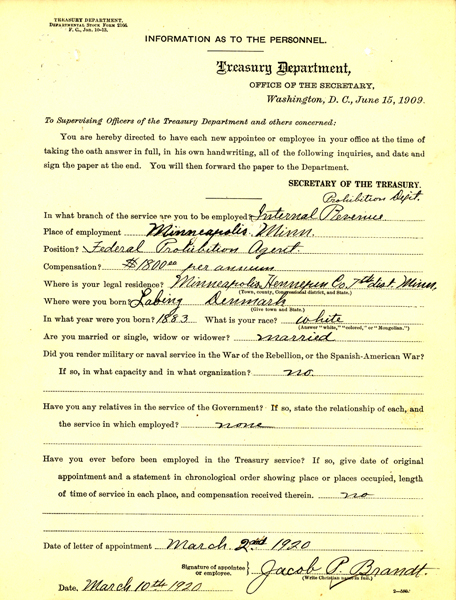 TREASURY DEPARTMENT,
DEPARTMENTAL STOCK FORM 2166.
F. C., Jan. 10-13.
INFORMATION AS TO THE PERSONNEL.
Treasury Department,
OFFICE OF THE SECRETARY,
Washington, D. C., June 15, 1909.
To Supervising Officers of the Treasury Department and others concerned:
You are hereby directed to have each new appointee or employee in your office at the time of
taking the oath answer in full, in his own handwriting, all of the following inquiries, and date and
sign the paper at the end. You will then forward the paper to the Department.
SECRETARY OF THE TREASURY.
Prohibition Dept.
In what branch of the service are you to be employed? Internal Revenue
Place of employment Minneapolis. Minn.
Position? Federal Prohibition Agent.
Compensation? $1800.00 per annum
Where is your legal residence? Minneapolis, Hennepin Co. 7th dist. Minn.
(Town, county, Congressional district, and State.)
Where were you born? Labing Denmark
(Give town and State.)
In what year were you born? 1883 What is your race? white
(Answer "white," "colored," or "Mongolian.")
Are you married or single, widow or widower? married
Did you render military or naval service in the War of the Rebellion, or the Spanish-American War?
If so, in what capacity and in what organization? no.
Have you any relatives in the service of the Government? If so, state the relationship of each, and
the service in which employed? none
Have you ever before been employed in the Treasury service? If so, give date of original
appointment and a statement in chronological order showing place or places occupied, length
of time of service in each place, and compensation received therein. no
Date of letter of appointment March. 2nd 1920
Signature of appointee or employee. Jacob P. Brandt.
(Write Christian name in full.)
Date. March 10th 1920